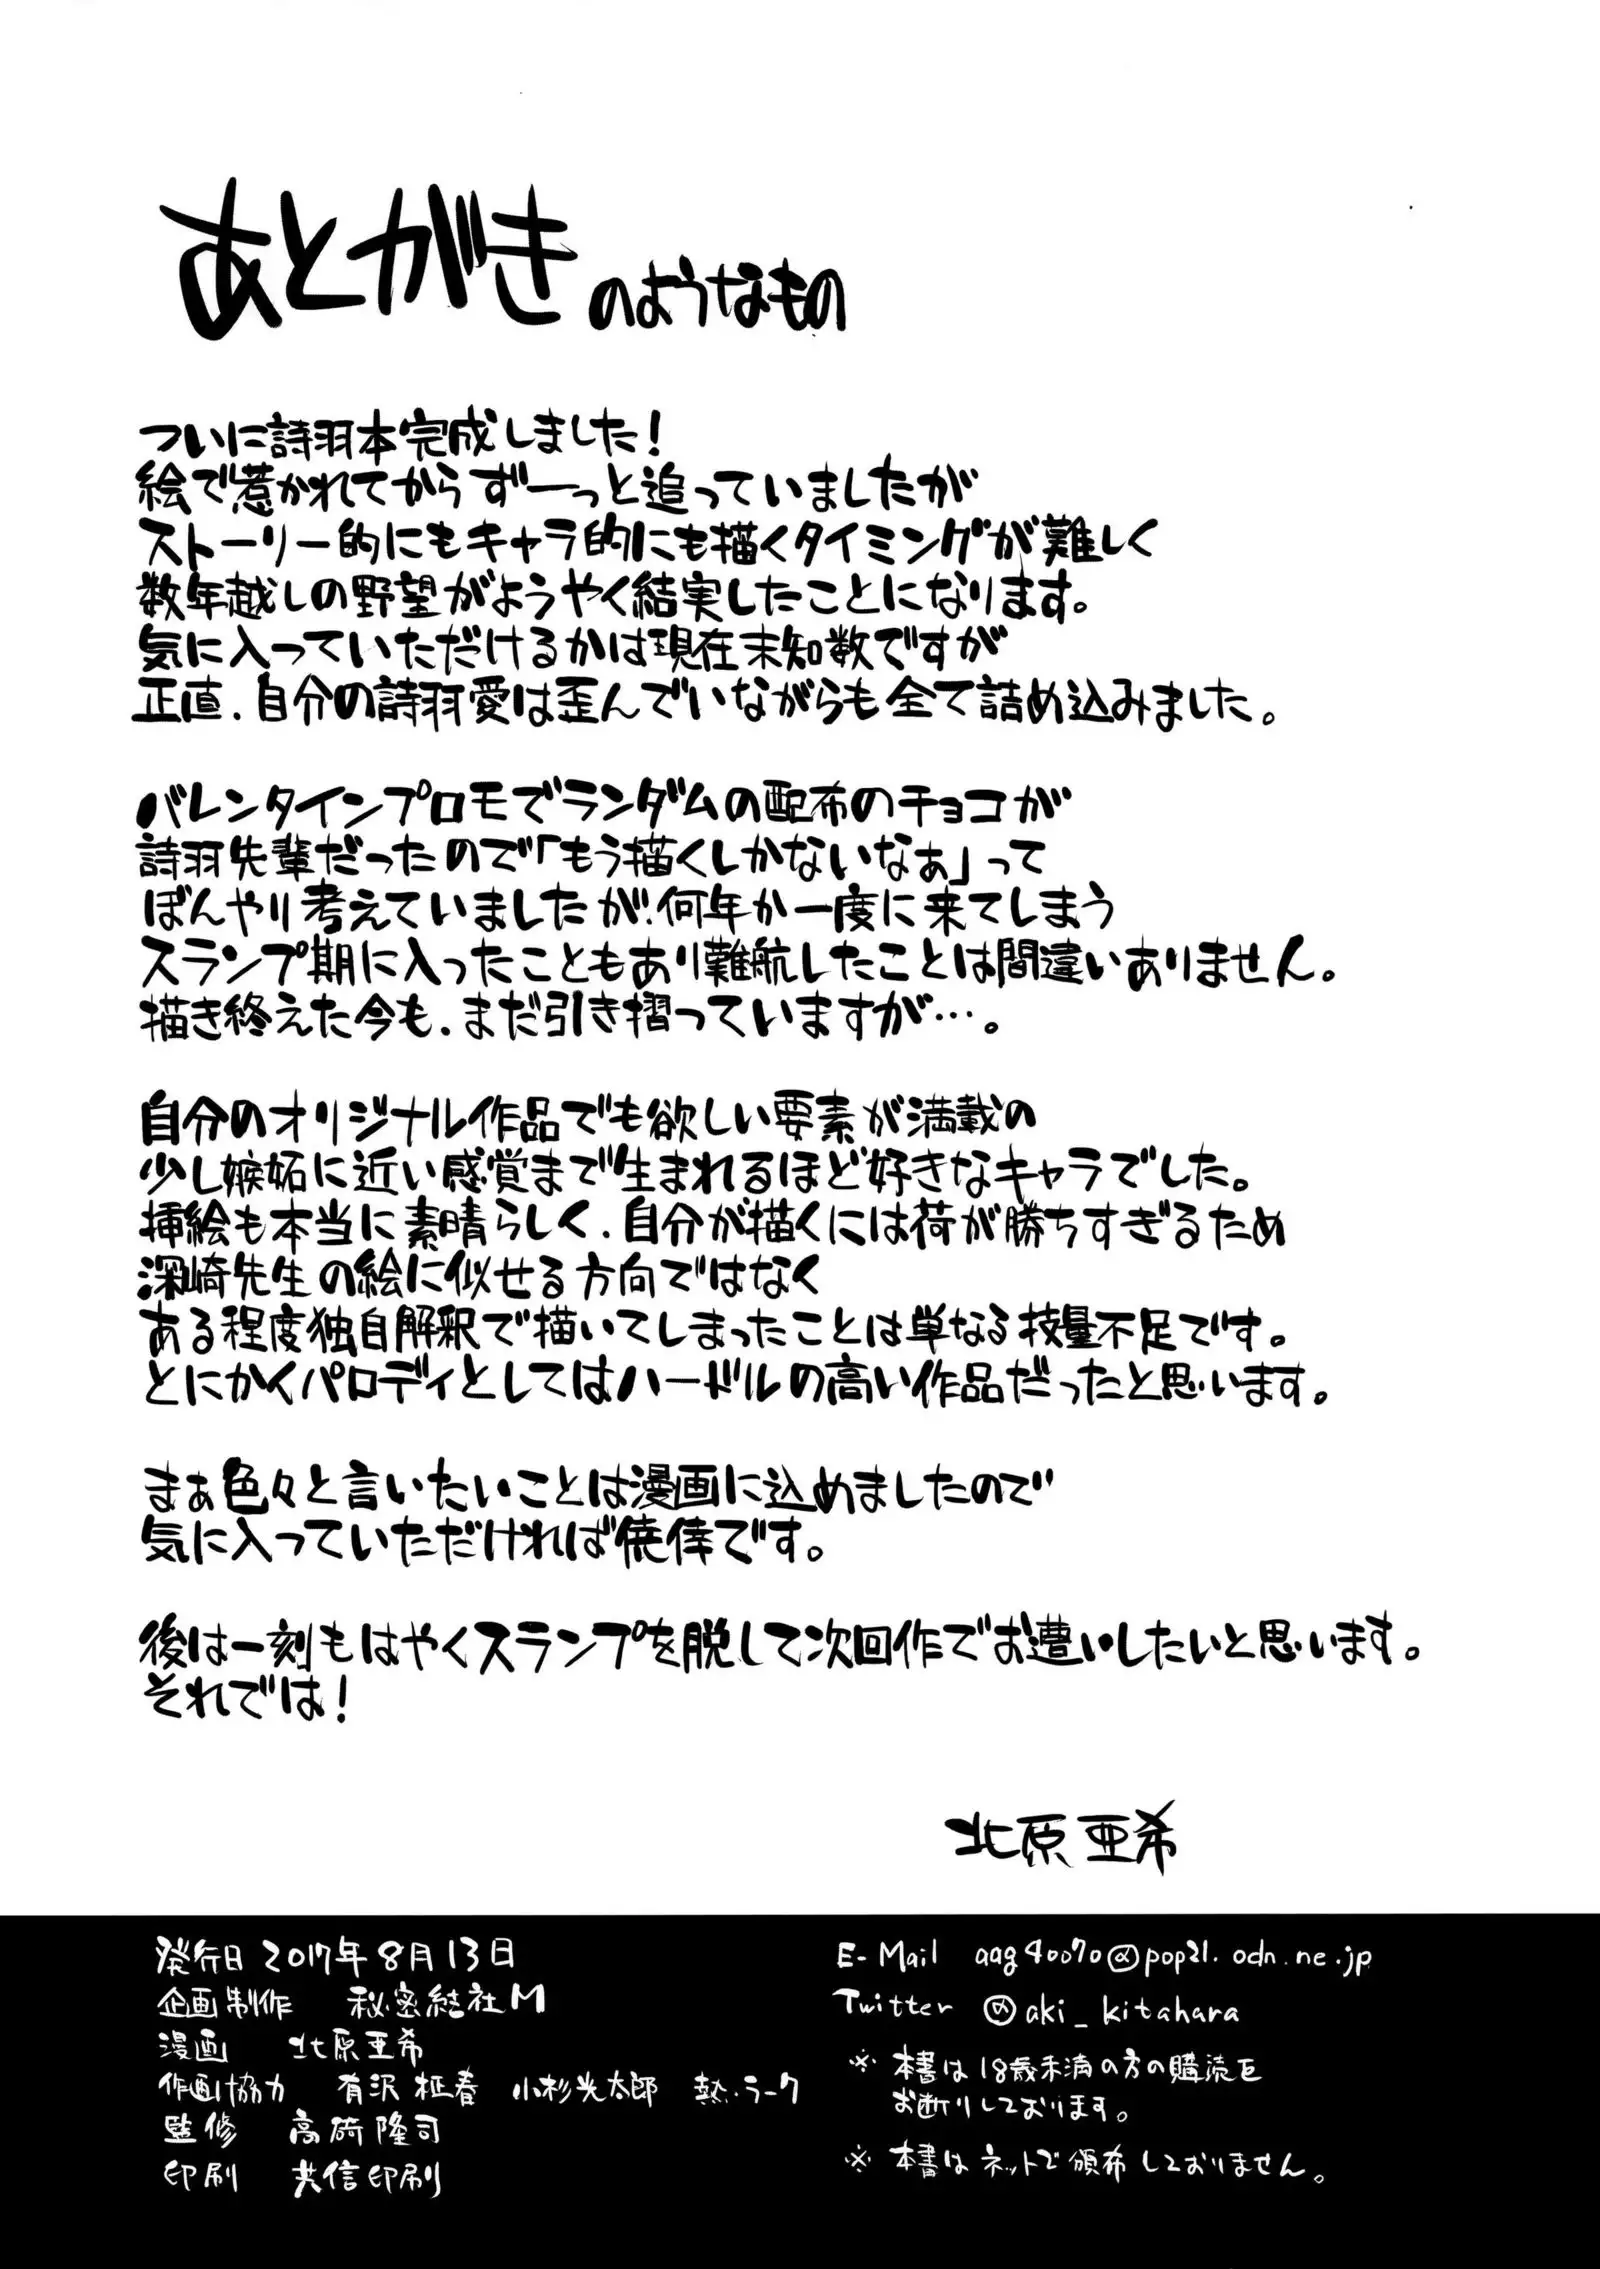 あとがきのようなもの
ついに詩羽本完成しました！
絵で惹かれてからずーっと追っていましたが
ストーリー的にもキャラ的にも描くタイミングが難しく
数年越しの野望がようやく結実したことになります。
気に入っていただけるかは現在未知数ですが
正直、自分の詩羽愛は歪んでいながらも全て詰め込みました。
バレンタインプロモでランダムの配布のチョコが
詩羽先輩だったので「もう描くしかないなぁ」って
ぼんやり考えていましたが、何年か一度に来てしまう
スランプ期に入ったこともあり難航したことは間違いありません。
描き終えた今も、まだ引き摺っていますが…。
自分のオリジナル作品でも欲しい要素が満載の
少し嫉妬に近い感覚まで生まれるほど好きなキャラでした。
挿絵も本当に素晴らしく、自分が描くには荷が勝ちすぎるため
深崎先生の絵に似せる方向ではなく
ある程度独自解釈で描いてしまったことは単なる技量不足です。
とにかくパロディとしてはハードルの高い作品だったと思います。
まぁ色々と言いたいことは漫画に込めましたので
気に入っていただければ僥倖です。
後は一刻もはやくスランプを脱して次回作でお遭いしたいと思います。
それでは！
北原亜希
発行日 2017年8月13日
企画制作 秘密結社M
漫画 北原亜希
作画協力 有沢柾春 小杉光太郎 熱・ラーク
監修 高碕隆司
印刷 共信印刷
E-Mail aag40070@pop21.odn.ne.jp
Twitter @aki_kitahara
※ 本書は18歳未満の方の購読を
お断りしております。
※ 本書はネットで頒布しておりません。